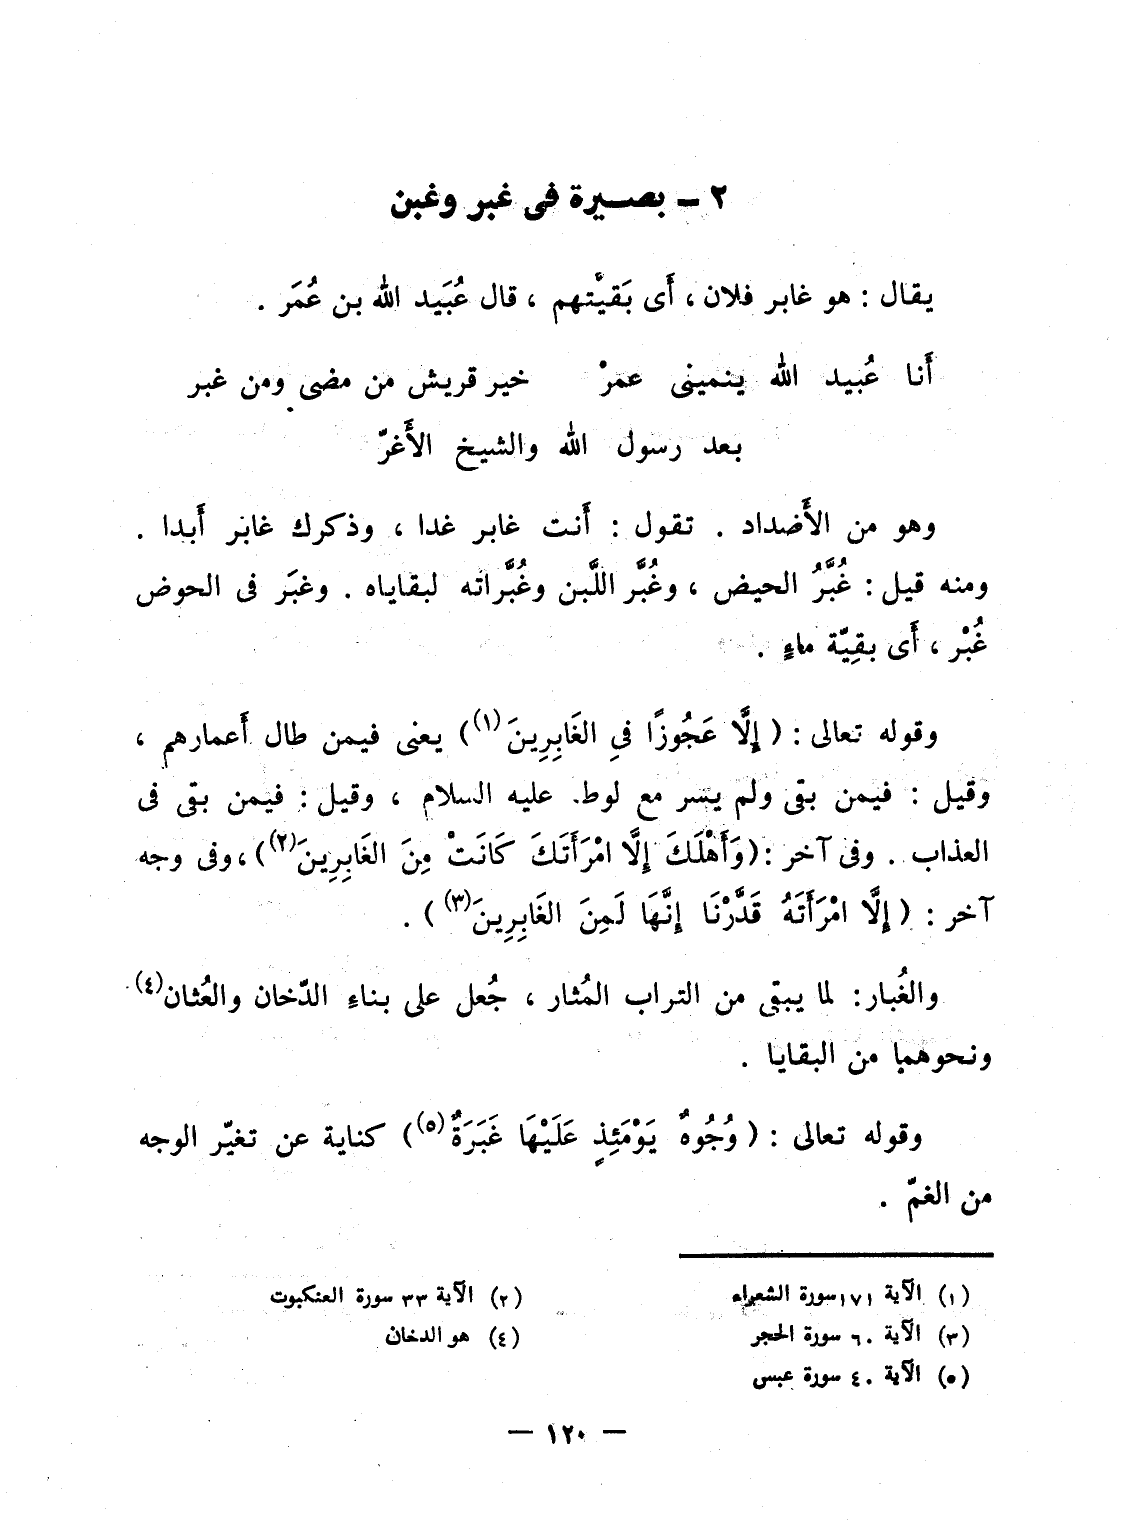 ٢ - بصيرة فى غبر وغبن
يقال : هو غابر فلان ، أَى بَقيَّتهم ، قال عُبَيد الله بن عُمَر .
أَنا عُبيد الله ينمينى عمرْ خير قريش من مضى ومن غبر
بعد رسول الله والشيخ الأَغرّ
وهو من الأَضداد . تقول : أَنت غابر غدا ، وذكرك غابر أَبدا .
ومنه قيل : غُبَّرُ الحيض ، وغُبَّر اللَّبن وغُبَّراته لبقاياه . وغبَر فى الحوض
غُبْر ، أَى بقِيّة ماءٍ .
وقوله تعالى : ( إِلَّا عَجُوزًا فىِ الغَابِرِينَ(١) ) يعنى فيمن طال أَعمارهم ،
وقيل : فيمن بقى ولم يسر مع لوط. عليه السلام ، وقيل : فيمن بقى فى
العذاب . وفى آخر : (وَأَهْلَكَ إِلَّا امْرَأَتَكَ كَانَتْ مِنَ الغَابِرِينَ(٢) ) ، وفى وجه
آخر : ( إِلَّا امْرَأَتَهُ قَدَّرْنَا إِنَّهَا لَمِنَ الغَابِرِينَ(٣) ) .
والغُبار : لما يبقى من التراب المُثار ، جُعل على بناءِ الدّخان والعُثان(٤)
ونحوهما من البقايا .
وقوله تعالى : ( وُجُوهٌ يَوْمَئِذٍ عَلَيْهَا غَبَرَةٌ(٥) ) كناية عن تغيّر الوجه
من الغمّ .
(١) الآية ١٧١ سورة الشعراء (٢) الآية ٣٣ سورة العنكبوت
(٣) الآية ٦٠ سورة الحجر (٤) هو الدخان
(٥) الآية ٤٠ سورة عبس
— ١٢٠ —